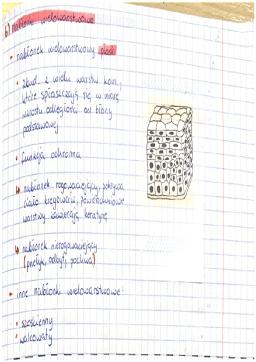 b) nabłonki wielowarstwowe
• nabłonek wielowarstwowy płaski
• zbud. z wielu warstw kom.,
które spłaszczają się w miarę
wzrostu odległości od błony
podstawowej
• funkcja ochronna
↳ nabłonek rogowaciejący, pokrywa
ciało kręgowców, powierzchniowe
warstwy zawierają keratynę
↳ nabłonek nierogowaciejący
(przełyk, odbyt, pochwa)
• inne nabłonki wielowarstwowe:
• sześcienny
• walcowaty